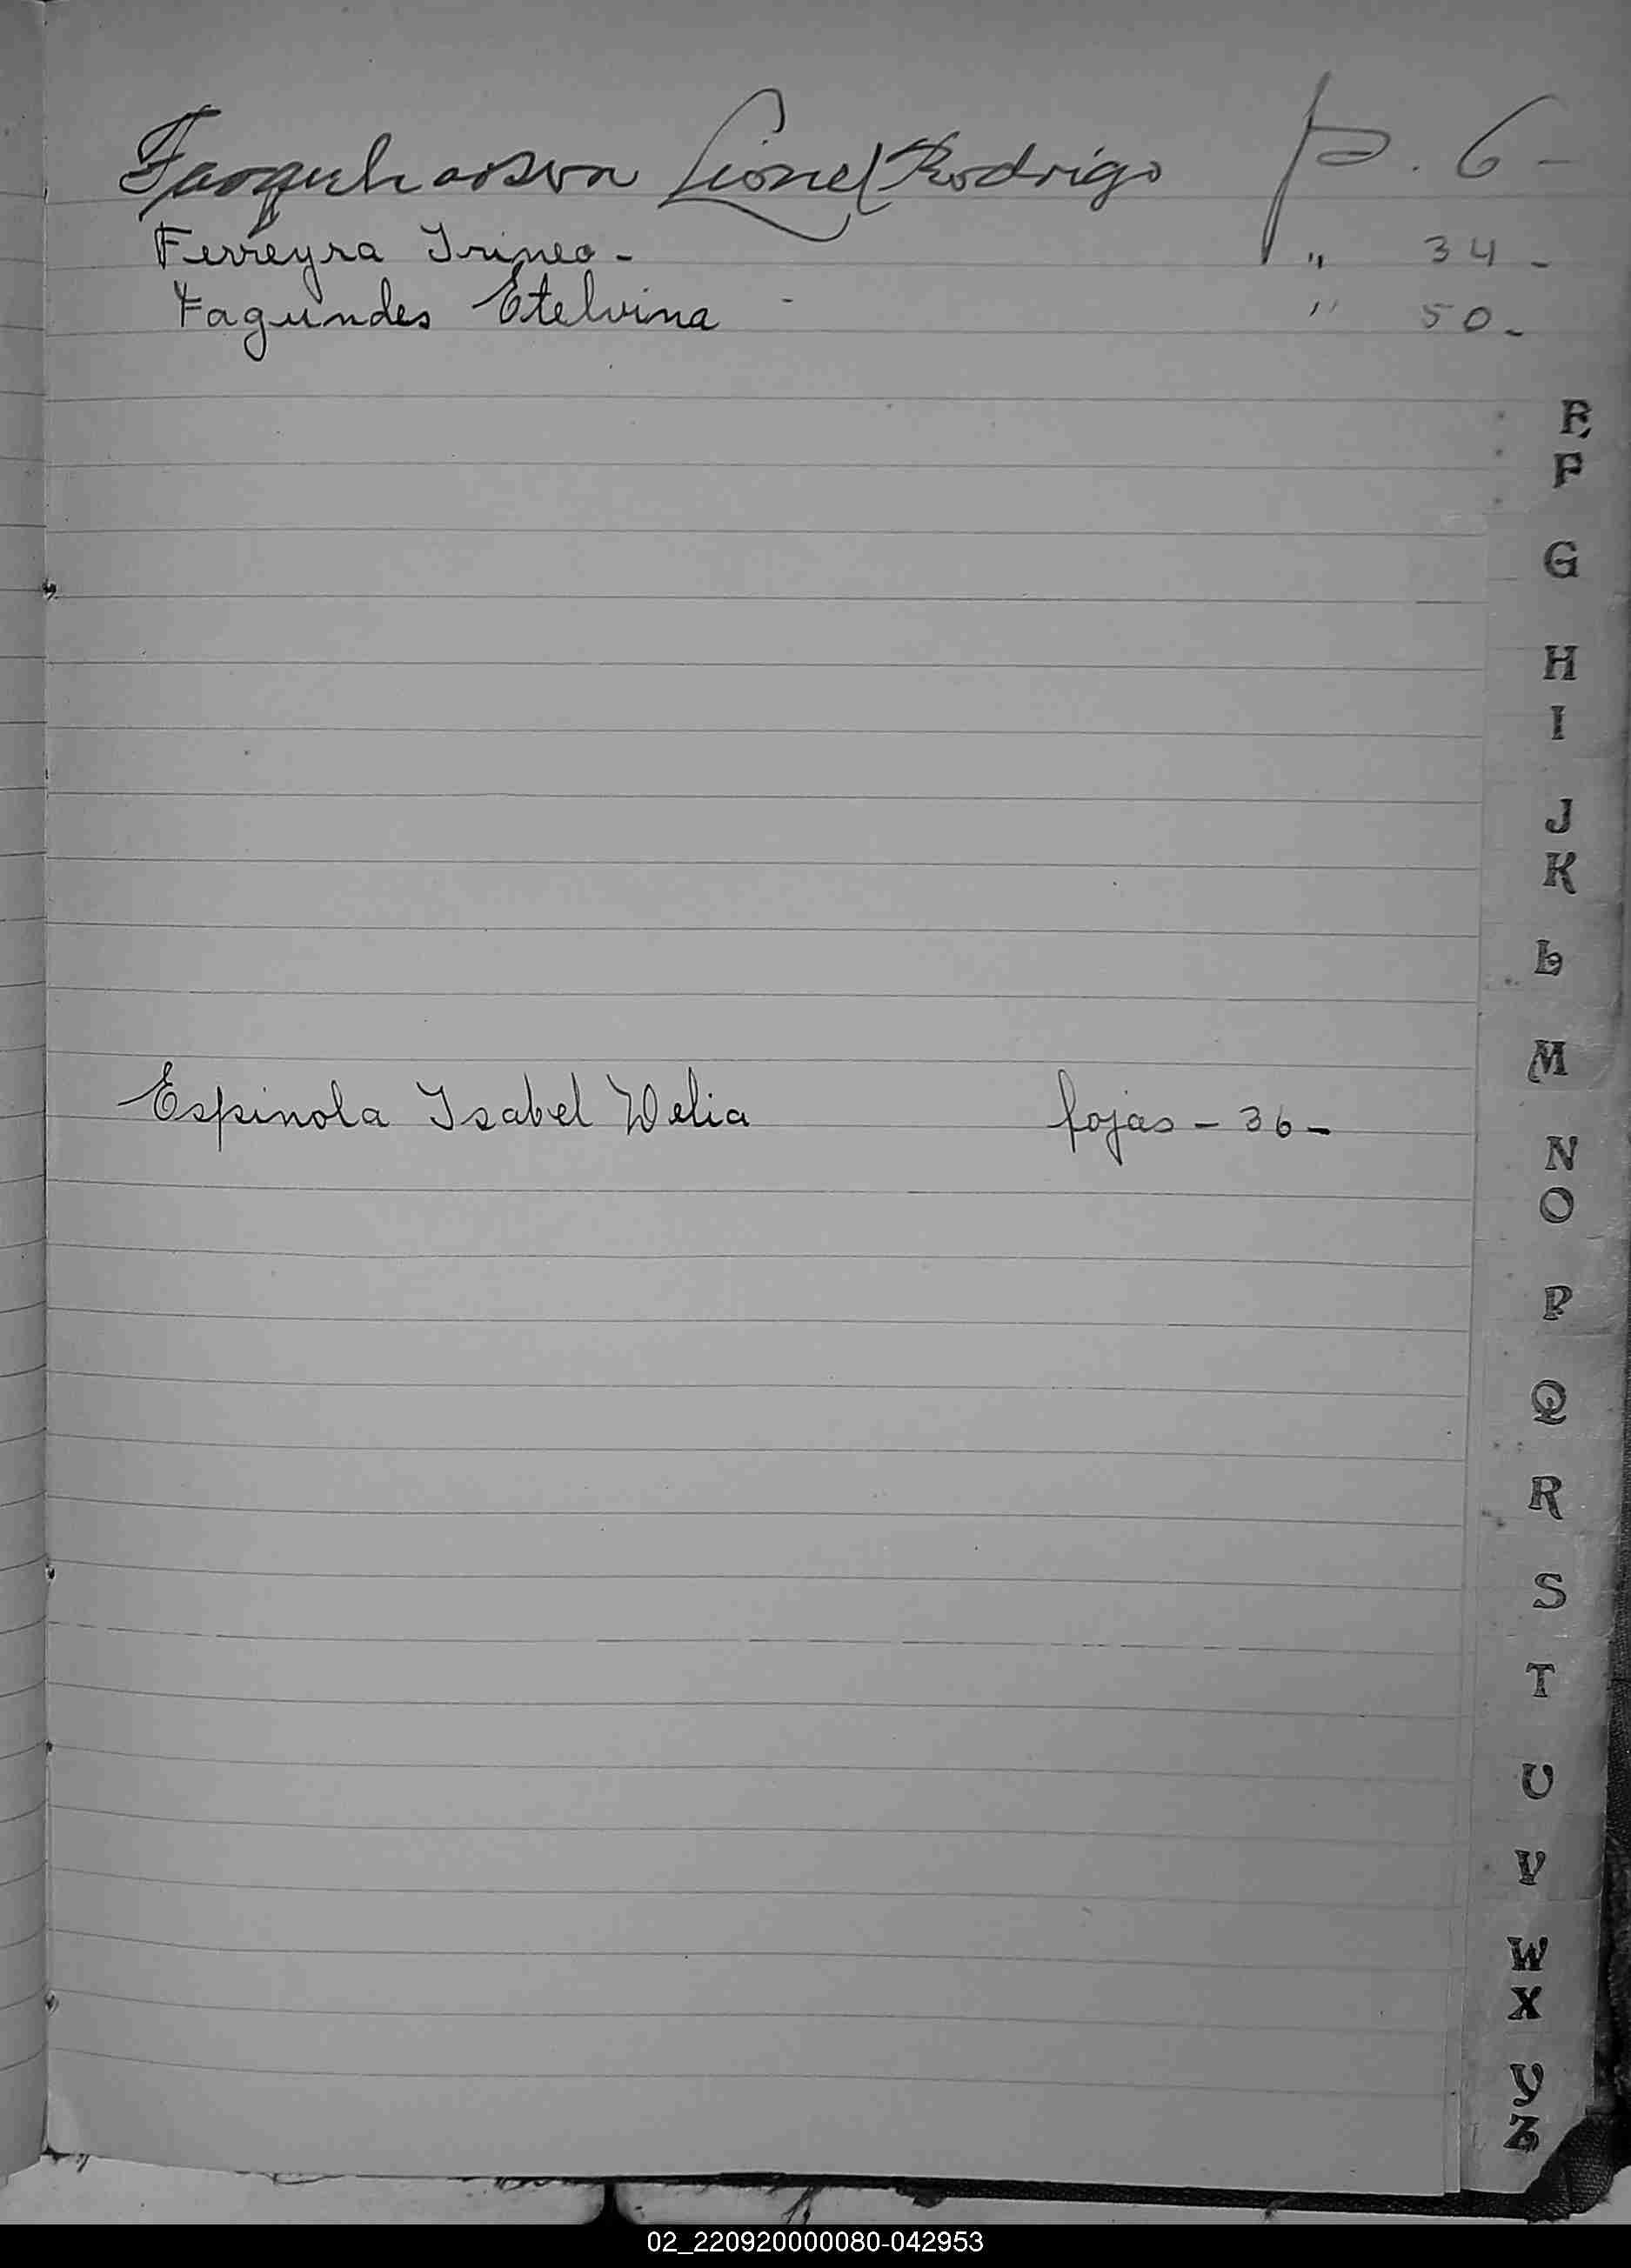 Farquharson Lionel Rodrigo p. 6-
Ferreyra Irineo- " 34-
Fagundes Etelvina - " 50-
E
F
G
H
I
J
K
L
M
Espinola Isabel Delia fojas - 36-
N
O
P
Q
R
S
T
U
V
W
X
Y
Z
02_220920000080-042953